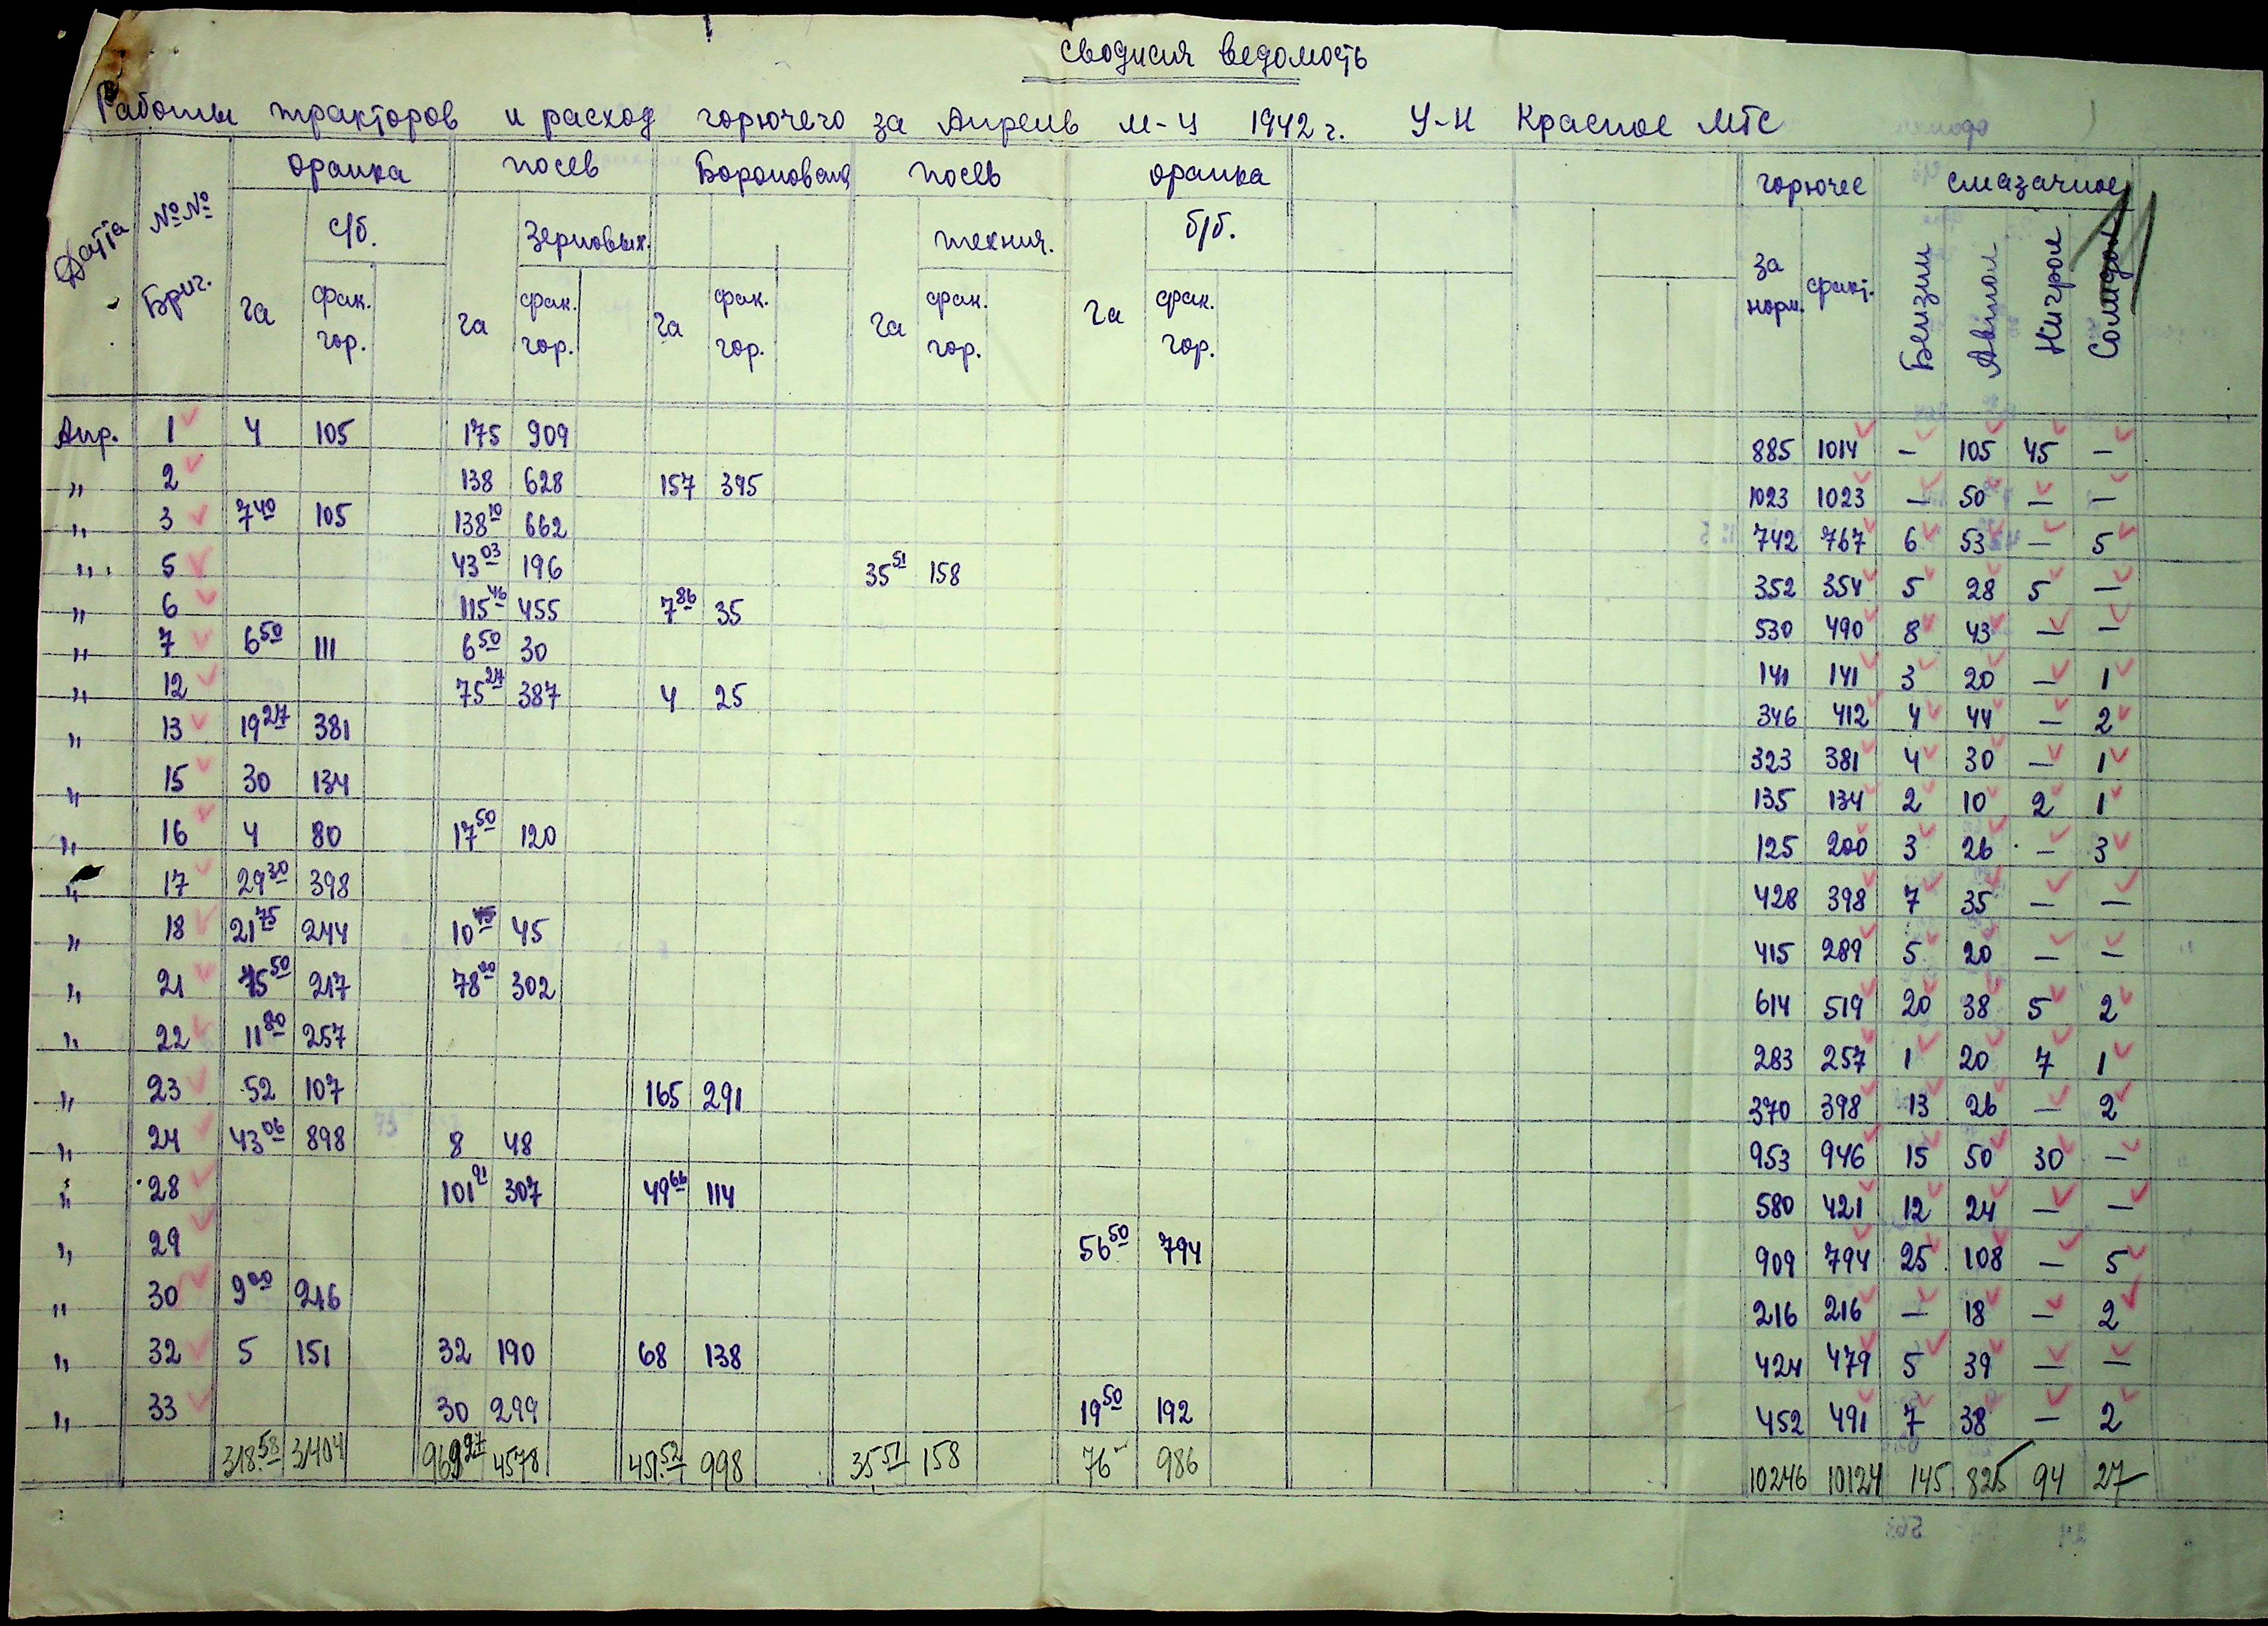 Сводная ведомость
Работы тракторов и расход горючего за Апрель м-ц 1942 г. У-Н Красное МТС
Датта №№ Бриг. оранка посев Боронован посев оранка горючее смазачное
с/б. Зерновых. технич. б/б.
га фак. гор. га фак. гор. га фак. гор. га фак. гор. га фак. гор. за норм. факт. Бензин Автол Нигрол Солидол
Апр. 1 4 105 175 909 885 1014 — 105 45 —
" 2 138 628 157 395 1023 1023 — 50 — —
" 3 7 40 105 138 10 662 742 767 6 53 — 5
" 5 43 03 196 35 51 158 352 354 5 28 5 —
" 6 115 46 455 7 86 35 530 490 8 43 — —
" 7 6 50 111 6 50 30 141 141 3 20 — 1
" 12 75 27 387 4 25 346 412 4 44 — 2
" 13 19 27 381 323 381 4 30 — 1
" 15 30 134 135 134 2 10 2 1
" 16 4 80 17 50 120 125 200 3 26 — 3
" 17 29 30 398 428 398 7 35 — —
" 18 21 75 244 10 45 415 289 5 20 — —
" 21 75 50 217 78 00 302 614 519 20 38 5 2
" 22 11 80 257 283 257 1 20 7 1
" 23 52 107 165 291 370 398 13 26 — 2
" 24 43 06 898 8 48 953 946 15 50 30 —
" 28 101 91 307 49 66 114 580 421 12 24 — —
" 29 56 50 794 909 794 25 108 — 5
" 30 9 00 216 216 216 — 18 — 2
" 32 5 151 32 190 68 138 424 479 5 39 — —
" 33 30 299 19 50 192 452 491 7 38 — 2
318.58 3404 969 27 4578 451.52 998 35 51 158 76 — 986 10246 10124 145 825 94 27